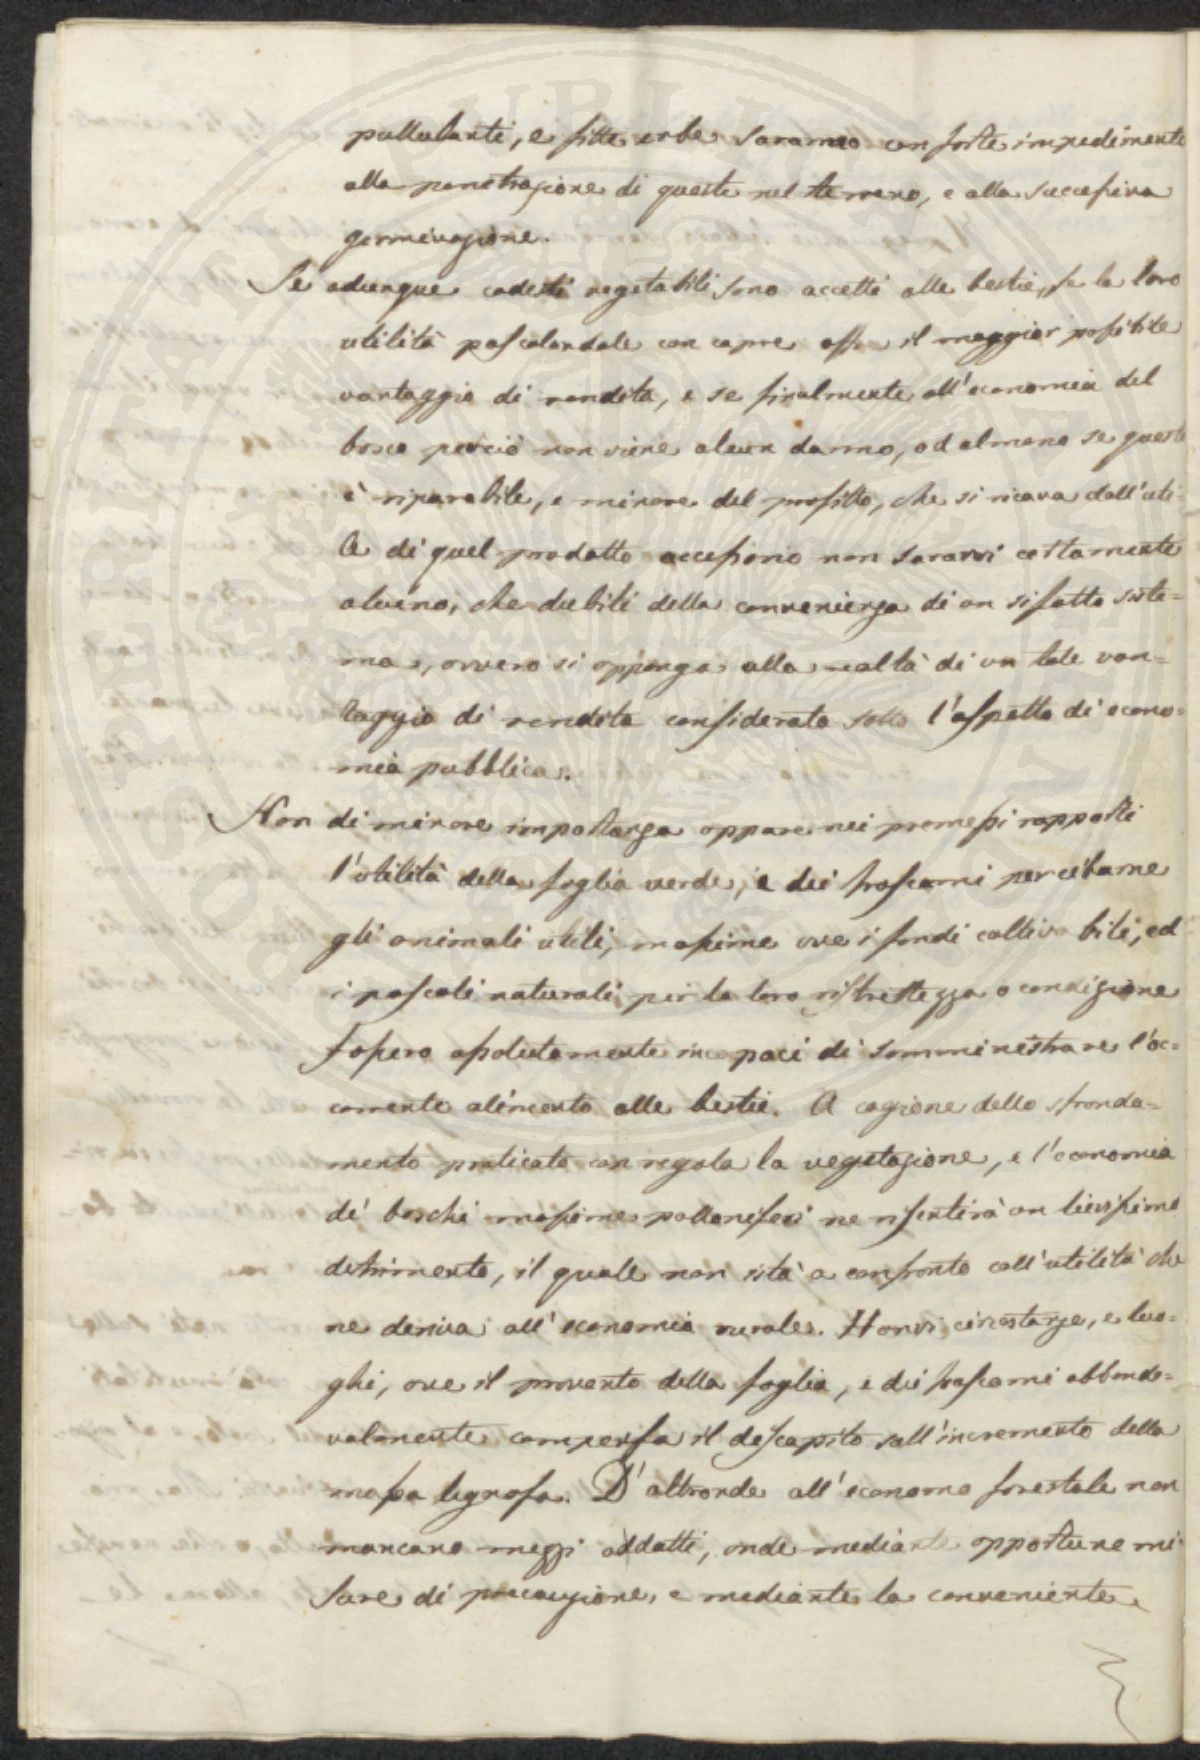 pullulanti, e fitte erbe saranno un forte impedimento
alla penetrazione di queste nel terreno, e alla successiva
germinazione.
Se adunque codesti vegetabili sono accetti alle bestie, se la loro
utilità pascolandole con capre offre il maggior possibile
vantaggio di rendita, e se finalmente all'economia del
bosco perciò non viene alcun danno, od almeno se questo
è riparabile, e minore del profitto, che si ricava dall'uti-
le di quel prodotto accessorio non saravvi certamente
alcuno, che dubiti della convenienza di un sifatto siste=
ma, ovvero si opponga alla realtà di un tale van=
taggio di rendita considerato sotto l'aspetto di econo=
mia pubblica.
Non di minore importanza appare nei premessi rapporti
l'utilità della foglia verde, e dei frascami per cibarne
gli animali utili, massime ove i fondi coltivabili, ed
i pascoli naturali per la loro ristrettezza o condizione
fossero assolutamente incapaci di somministrare l'oc=
corrente alimento alle bestie. A cagione dello sfronda=
mento praticato con regola la vegetazione, e l'economia
di boschi massime polloniferi ne risentirà un lievissimo
detrimento, il quale non istà a confronto coll'utilità che
ne deriva all'economia rurale. Honvi circostanze, e luo=
ghi, ove il provento della foglia, e dei frascami abbonde=
volmente compensa il descapito sull'incremento della
massa legnosa. D'altronde all'economo forestale non
mancano mezzi addatti, onde mediante opportune mi
sure di precauzione, e mediante la conveniente